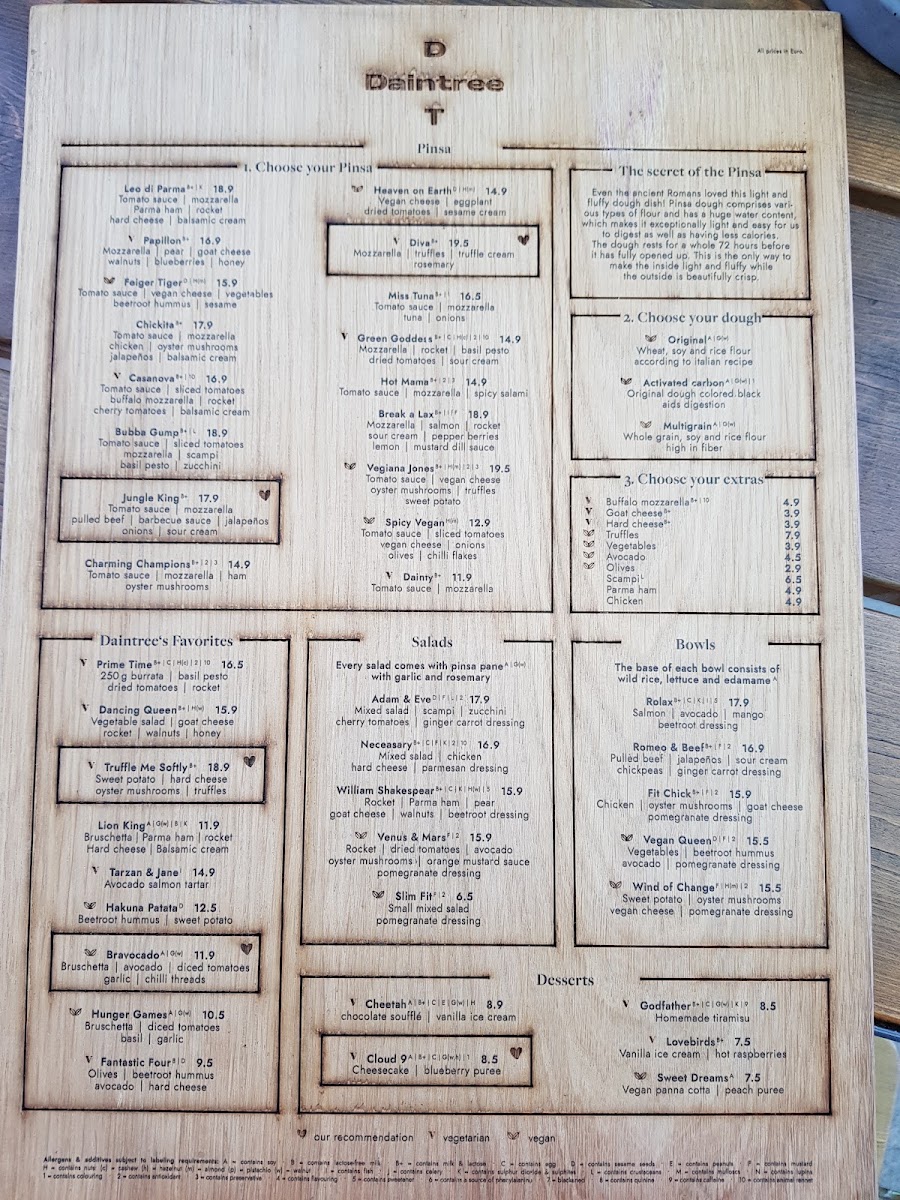 D
Daintree
T
All prices in Euro.
Pinsa
1. Choose your Pinsa
Leo di Parma B+ | K 18.9
Tomato sauce | mozzarella
Parma ham | rocket
hard cheese | balsamic cream
Papillon B+ 16.9
Mozzarella | pear | goat cheese
walnuts | blueberries | honey
Feiger Tiger D | H(n) 15.9
Tomato sauce | vegan cheese | vegetables
beetroot hummus | sesame
Chickita B+ 17.9
Tomato sauce | mozzarella
chicken | oyster mushrooms
jalapeños | balsamic cream
Casanova B+ | 10 16.9
Tomato sauce | sliced tomatoes
buffalo mozzarella | rocket
cherry tomatoes | balsamic cream
Bubba Gump B+ | L 18.9
Tomato sauce | sliced tomatoes
mozzarella | scampi
basil pesto | zucchini
Jungle King B+ 17.9
Tomato sauce | mozzarella
pulled beef | barbecue sauce | jalapeños
onions | sour cream
Charming Champions B+ | 2 | 3 14.9
Tomato sauce | mozzarella | ham
oyster mushrooms
Heaven on Earth D | H(n) 14.9
Vegan cheese | eggplant
dried tomatoes | sesame cream
Diva B+ 19.5
Mozzarella | truffles | truffle cream
rosemary
Miss Tuna B+ | I 16.5
Tomato sauce | mozzarella
tuna | onions
Green Goddess B+ | C | H(c) | 2 | 10 14.9
Mozzarella | rocket | basil pesto
dried tomatoes | sour cream
Hot Mama B+ | 2 | 3 14.9
Tomato sauce | mozzarella | spicy salami
Break a Lax B+ | I | F 18.9
Mozzarella | salmon | rocket
sour cream | pepper berries
lemon | mustard dill sauce
Vegiana Jones B+ | H(n) | 2 | 3 19.5
Tomato sauce | vegan cheese
oyster mushrooms | truffles
sweet potato
Spicy Vegan H(n) 12.9
Tomato sauce | sliced tomatoes
vegan cheese | onions
olives | chilli flakes
Dainty B+ 11.9
Tomato sauce | mozzarella
The secret of the Pinsa
Even the ancient Romans loved this light and
fluffy dough dish! Pinsa dough comprises vari-
ous types of flour and has a huge water content,
which makes it exceptionally light and easy for us
to digest as well as having less calories.
The dough rests for a whole 72 hours before
it has fully opened up. This is the only way to
make the inside light and fluffy while
the outside is beautifully crisp.
2. Choose your dough
Original A | G(w)
Wheat, soy and rice flour
according to italian recipe
Activated carbon A | G(w) | 1
Original dough colored black
aids digestion
Multigrain A | G(w)
Whole grain, soy and rice flour
high in fiber
3. Choose your extras
Buffalo mozzarella B+ | 10 4.9
Goat cheese B+ 3.9
Hard cheese B+ 3.9
Truffles 7.9
Vegetables 3.9
Avocado 4.5
Olives 2.9
Scampi L 6.5
Parma ham 4.9
Chicken 4.9
Daintree's Favorites
Prime Time B+ | C | H(c) | 2 | 10 16.5
250 g burrata | basil pesto
dried tomatoes | rocket
Dancing Queen B+ | H(w) 15.9
Vegetable salad | goat cheese
rocket | walnuts | honey
Truffle Me Softly B+ 18.9
Sweet potato | hard cheese
oyster mushrooms | truffles
Lion King A | G(w) | B | K 11.9
Bruschetta | Parma ham | rocket
Hard cheese | Balsamic cream
Tarzan & Jane I 14.9
Avocado salmon tartar
Hakuna Patata D 12.5
Beetroot hummus | sweet potato
Bravocado A | G(w) 11.9
Bruschetta | avocado | diced tomatoes
garlic | chilli threads
Hunger Games A | G(w) 10.5
Bruschetta | diced tomatoes
basil | garlic
Fantastic Four B | D 9.5
Olives | beetroot hummus
avocado | hard cheese
Salads
Every salad comes with pinsa pane A | G(w)
with garlic and rosemary
Adam & Eve D | F | L | 2 17.9
Mixed salad | scampi | zucchini
cherry tomatoes | ginger carrot dressing
Neceasary B+ | C | F | K | 2 | 10 16.9
Mixed salad | chicken
hard cheese | parmesan dressing
William Shakespear B+ | C | K | H(w) | 5 15.9
Rocket | Parma ham | pear
goat cheese | walnuts | beetroot dressing
Venus & Mars F | 2 15.9
Rocket | dried tomatoes | avocado
oyster mushrooms | orange mustard sauce
pomegranate dressing
Slim Fit F | 2 6.5
Small mixed salad
pomegranate dressing
Bowls
The base of each bowl consists of
wild rice, lettuce and edamame A
Rolax B+ | C | K | I | 5 17.9
Salmon | avocado | mango
beetroot dressing
Romeo & Beef B+ | F | 2 16.9
Pulled beef | jalapeños | sour cream
chickpeas | ginger carrot dressing
Fit Chick B+ | F | 2 15.9
Chicken | oyster mushrooms | goat cheese
pomegranate dressing
Vegan Queen D | F | 2 15.5
Vegetables | beetroot hummus
avocado | pomegranate dressing
Wind of Change F | H(m) | 2 15.5
Sweet potato | oyster mushrooms
vegan cheese | pomegranate dressing
Desserts
Cheetah A | B+ | C | E | G(w) | H 8.9
chocolate soufflé | vanilla ice cream
Cloud 9 A | B+ | C | G(w,h) | 1 8.5
Cheesecake | blueberry puree
Godfather B+ | C | G(w) | K | 9 8.5
Homemade tiramisu
Lovebirds B+ 7.5
Vanilla ice cream | hot raspberries
Sweet Dreams A 7.5
Vegan panna cotta | peach puree
our recommendation V vegetarian vegan
Allergens & additives subject to labeling requirements: A = contains soy B = contains lactosefree milk B+ = contains milk & lactose C = contains egg D = contains sesame seeds E = contains peanuts F = contains mustard
H = contains nuts: (c) = cashew (h) = hazelnut (m) = almond (p) = pistachio (w) = walnut I = contains fish J = contains celery K = contains sulphur dioxide & sulphites L = contains crustaceans M = contains molluscs N = contains lupins
1 = contains colouring 2 = contains antioxidant 3 = contains preservative 4 = contains flavouring 5 = contains sweetener 6 = contains a source of phenylalanine 7 = blackened 8 = contains quinine 9 = contains caffeine 10 = contains animal rennet